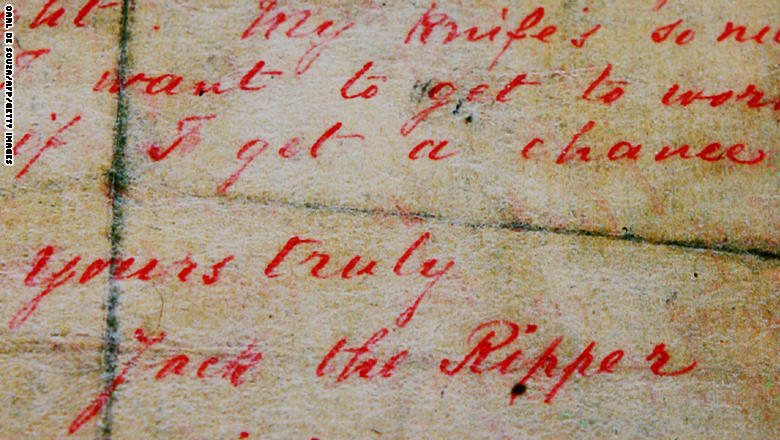 ht. My Knife's so ni
I want to get to wor
if I get a chance
yours truly
Jack the Ripper
CARL DE SOUZA/AFP/GETTY IMAGES